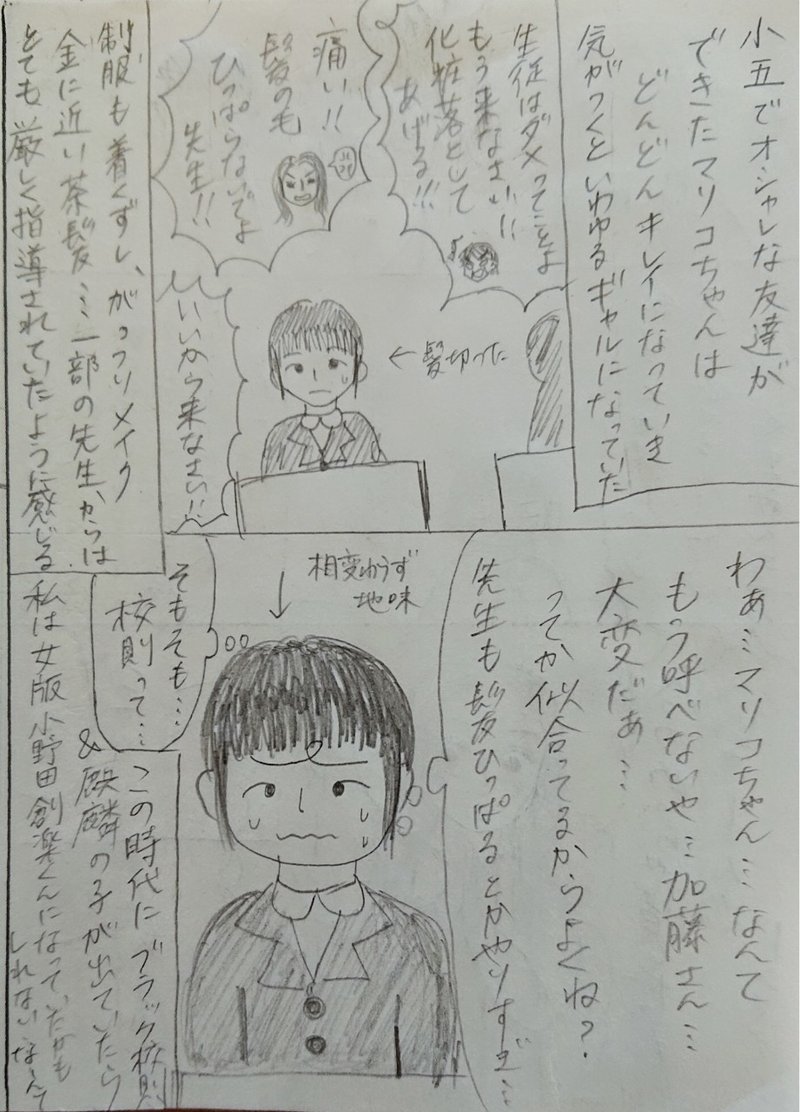 小五でオシャレな友達が
できたマリコちゃんは
どんどんキレイになっていき
気がつくといわゆるギャルになっていた
生徒はダメってことよ
もう来なさい!!
化粧落として
あげる!!
痛い!!
髪のも
ひっぱらないでよ
先生!!
←髪切った
いいから来なさい!!
制服も着くずし、がっつりメイク
金に近い茶髪…一部の先生からは
とても厳しく指導されていたように感じる
わぁ…マリコちゃん…なんて
もう呼べないや…加藤さん…
大変だぁ…
ってか似合ってるからよくね?
先生も髪ひっぱるとかやりすぎ…
相変わらず
地味
そもそも…
校則って…
この時代にブラック校則
&麒麟の子が出ていたら
私は女版小野田創楽くんになっていたかも
しれないなんて